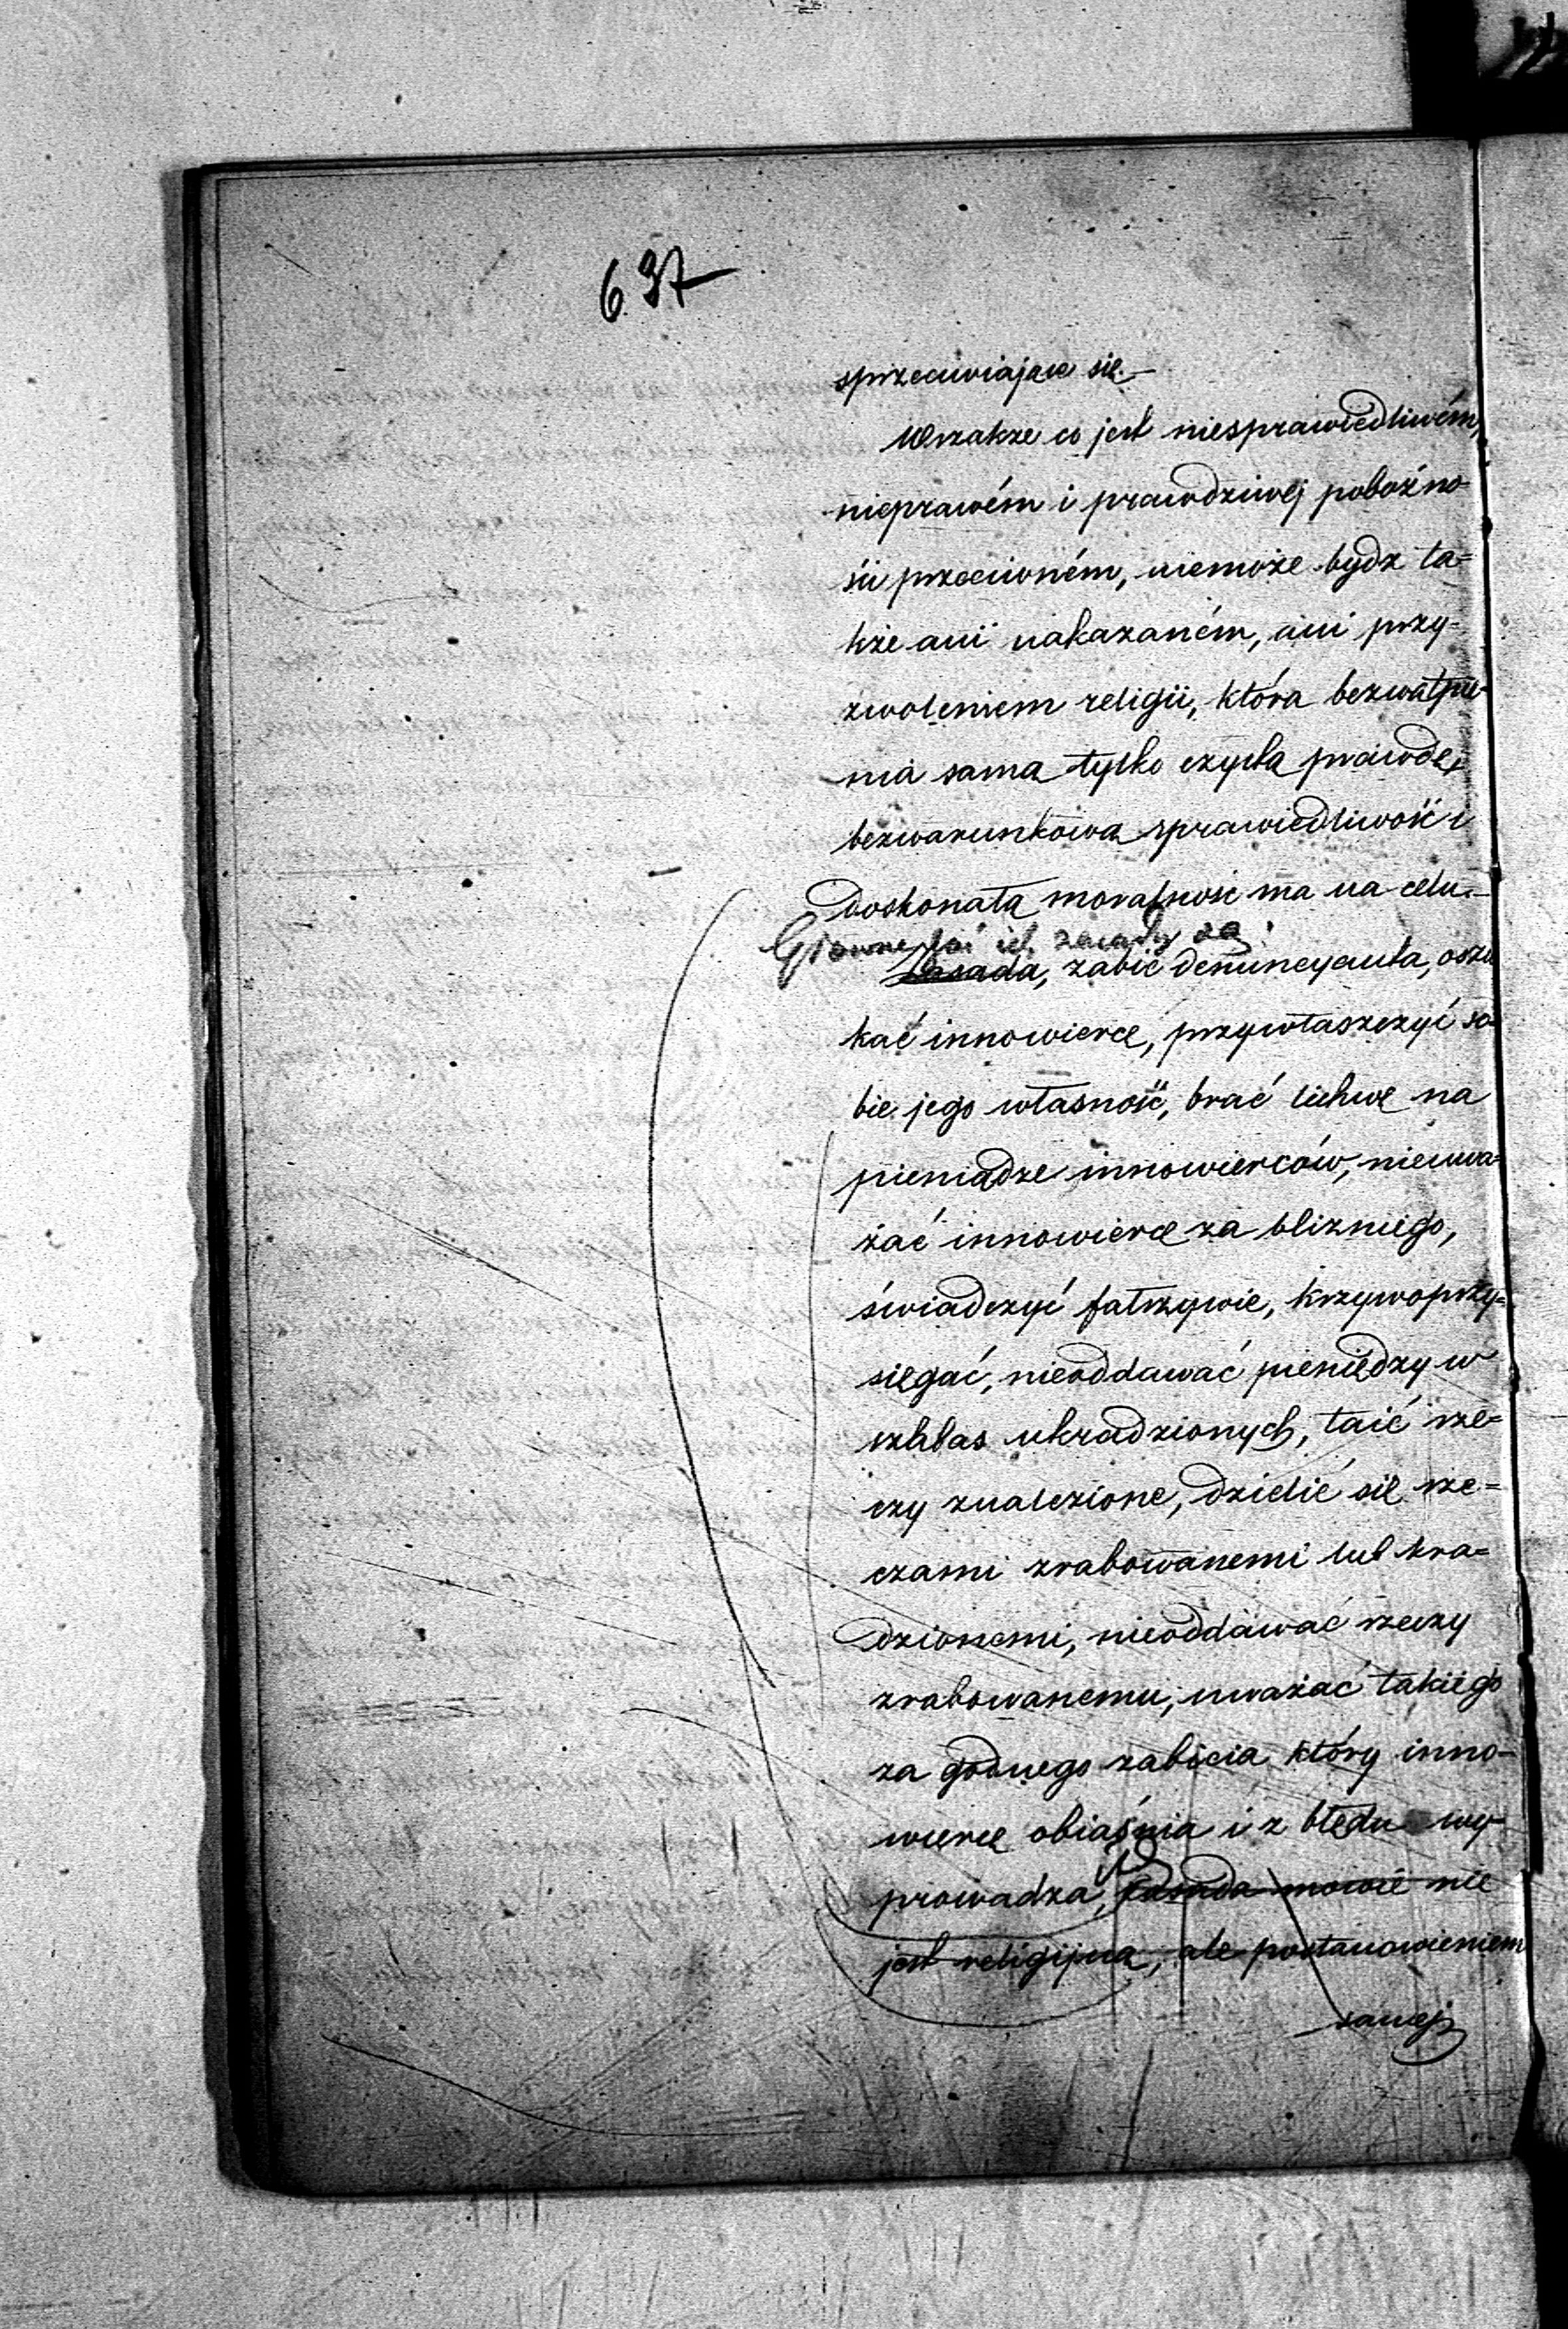 637
sprzeciwiające się.—
Wszakże co jest niesprawiedliwém,
nieprawém i prawdziwéj pobożno-
ści przeciwném, niemoże bydz ta=
kże ani nakazaném, ani przy=
zwoleniem religii, która bezwątpie-
nia sama tylko czystą prawdę,
bezwarunkową sprawiedliwość i
doskonałą moralność ma na celu.—
Główne ich zasady są:
Zasada, zabić denuncyanta, oszu
kać innowiercę, przywłaszczyć so=
bie jego własność, brać lichwę na
pieniądze innowierców, nieuwa=
żać innowiercę za blizniego,
świadczyć fałszywie, krzywoprzy=
sięgać, nieoddawać pieniędzy w
szabas ukradzionych, taić rze=
czy znalezione, dzielić się rze=
czami zrabowanemi lub kra=
dzionemi, nieoddawać rzeczy
zrabowanemu, uważać takiego
za godnego zabicia który inno-
wiercę obiaśnia i z błędu wy-
prowadza, zasada mówię nie
jest religijną, ale postanowieniem
samej